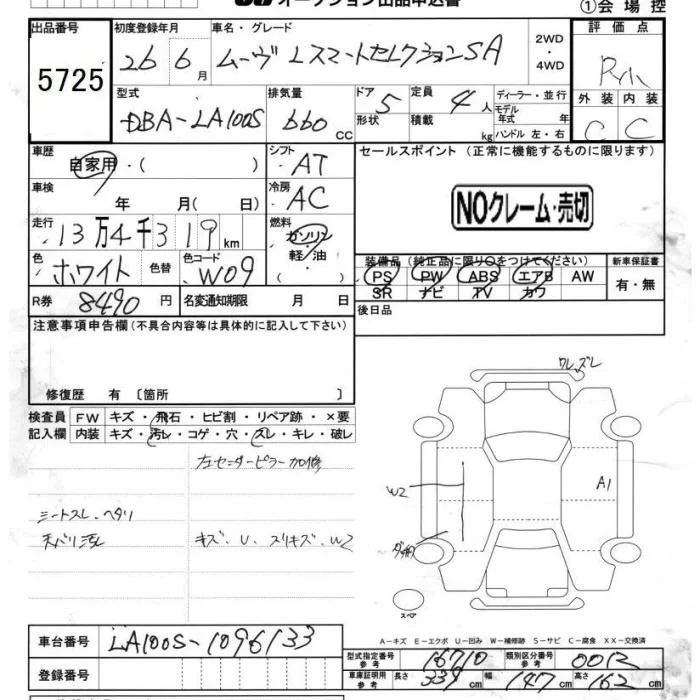 オークション出品申込書
①会場控
出品番号
5725
初度登録年月
26年6月
車名・グレード
ムーヴ Lスマートセレクション SA
2WD
・
4WD
評価点
外装 内装
C C
型式
DBA-LA100S
排気量
660 CC
ドア
5
形状
定員
4人
積載
kg
ディーラー・並行
モデル
年式 年
ハンドル 左・右
車歴
自家用・( )
シフト
AT
セールスポイント (正常に機能するものに限ります)
NOクレーム・売切
車検
年 月( 日)
冷房
AC
走行
13万4千319km
燃料
ガソリン
軽・油
( )
色
ホワイト
色替
色コード
W09
装備品 (純正品に限り○をつけてください)
PS PW ABS エアB AW
SR ナビ TV カワ
新車保証書
有・無
R券 8490円
名変通知期限 月 日
後日品
注意事項申告欄(不具合内容等は具体的に記入して下さい)
修復歴 有〔箇所 〕
検査員
記入欄
FW キズ・飛石・ヒビ割・リペア跡・×要
内装 キズ・汚レ・コゲ・穴・スレ・キレ・破レ
左センターピラー加修
シートスレ、ヘタリ
天バリ汚レ
キズ、U、スリキズ、W2
ワレ、ズレ
W2
A1
スペア
A-キズ E-エクボ U-凹み W-補修跡 S-サビ C-腐食 XX-交換済
車台番号
LA100S-1096133
登録番号
型式指定番号
参考
16710
類別区分番号
参考
0012
車庫証明用
参考
長さ 339cm
幅 147cm
高さ 162cm